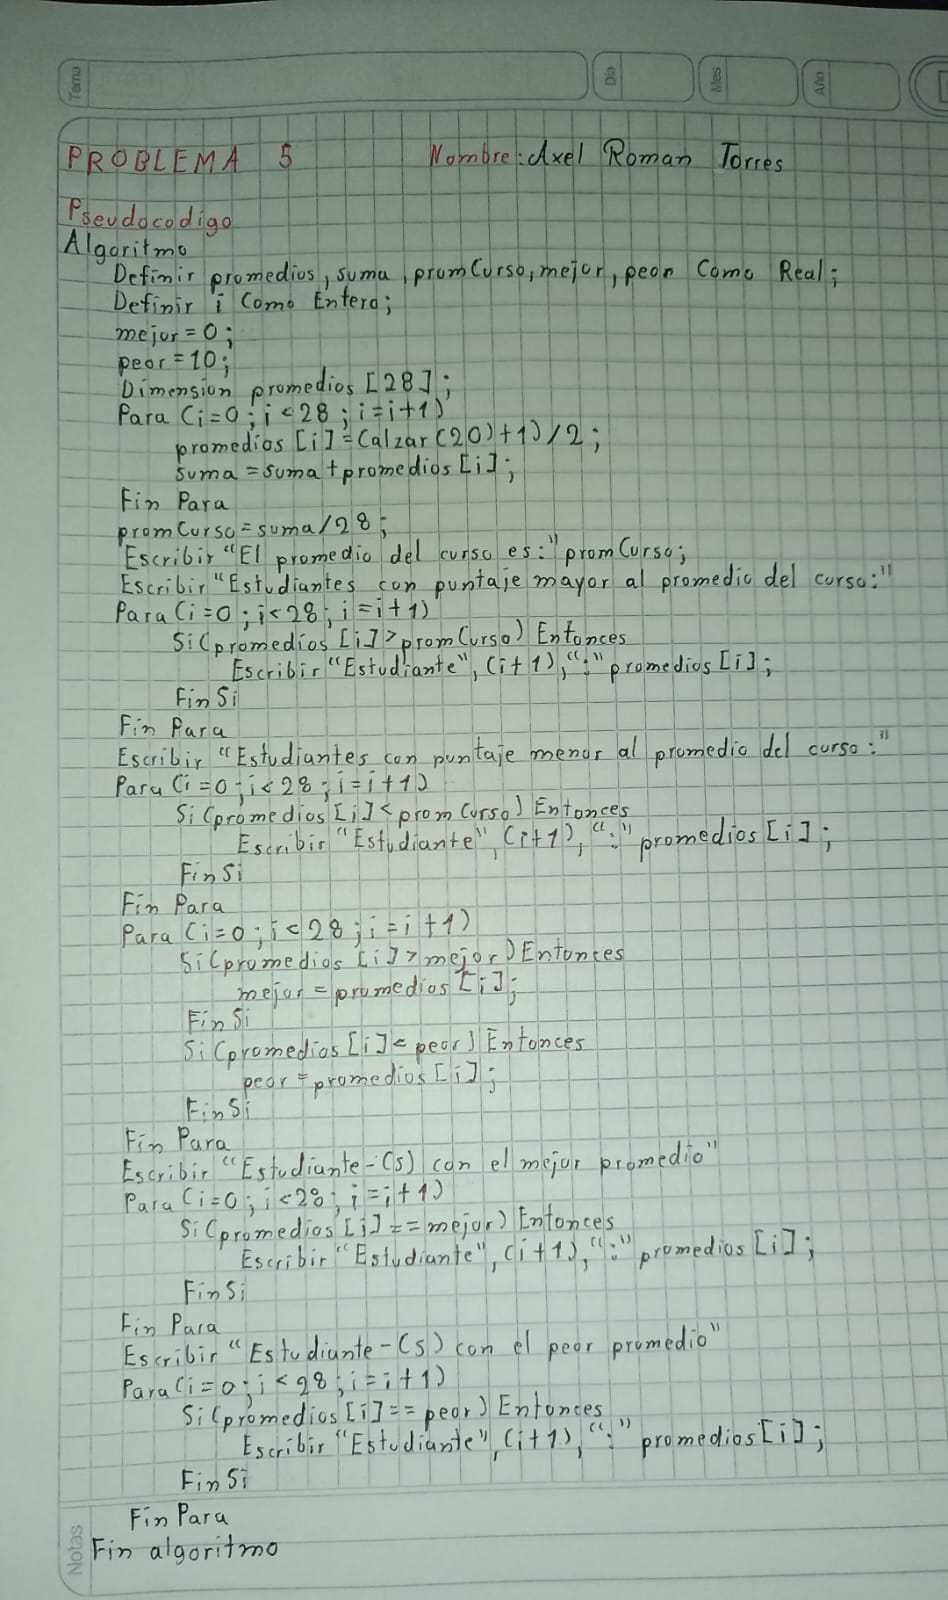 Tema
Dia
Mes
Año
PROBLEMA 5 Nombre: Axel Roman Torres
Pseudocodigo
Algoritmo
Definir promedios, suma, promCurso, mejor, peor Como Real;
Definir i Como Entero;
mejor=0;
peor=10;
Dimension promedios [28];
Para (i=0; i<28; i=i+1)
promedios [i]=(alzar(20)+1)/2;
suma=suma+promedios[i];
Fin Para
promCurso=suma/28;
Escribir "El promedio del curso es:" promCurso;
Escribir "Estudiantes con puntaje mayor al promedio del curso:"
Para (i=0; i<28; i=i+1)
Si(promedios [i]>promCurso) Entonces
Escribir "Estudiante", (i+1), ":" promedios[i];
FinSi
Fin Para
Escribir "Estudiantes con puntaje menor al promedio del curso:"
Para (i=0; i<28; i=i+1)
Si(promedios [i]<promCurso) Entonces
Escribir "Estudiante", (i+1), ":" promedios[i];
FinSi
Fin Para
Para (i=0; i<28; i=i+1)
Si(promedios [i]>mejor) Entonces
mejor=promedios [i];
FinSi
Si(promedios[i]<peor) Entonces
peor=promedios[i];
FinSi
Fin Para
Escribir "Estudiante-(s) con el mejor promedio"
Para (i=0; i<28; i=i+1)
Si(promedios [i]==mejor) Entonces
Escribir "Estudiante", (i+1), ":" promedios [i];
FinSi
Fin Para
Escribir "Estudiante-(s) con el peor promedio"
Para(i=0; i<28; i=i+1)
Si(promedios[i]==peor) Entonces
Escribir "Estudiante", (i+1), ":" promedios[i];
FinSi
Fin Para
Fin algoritmo
Notas